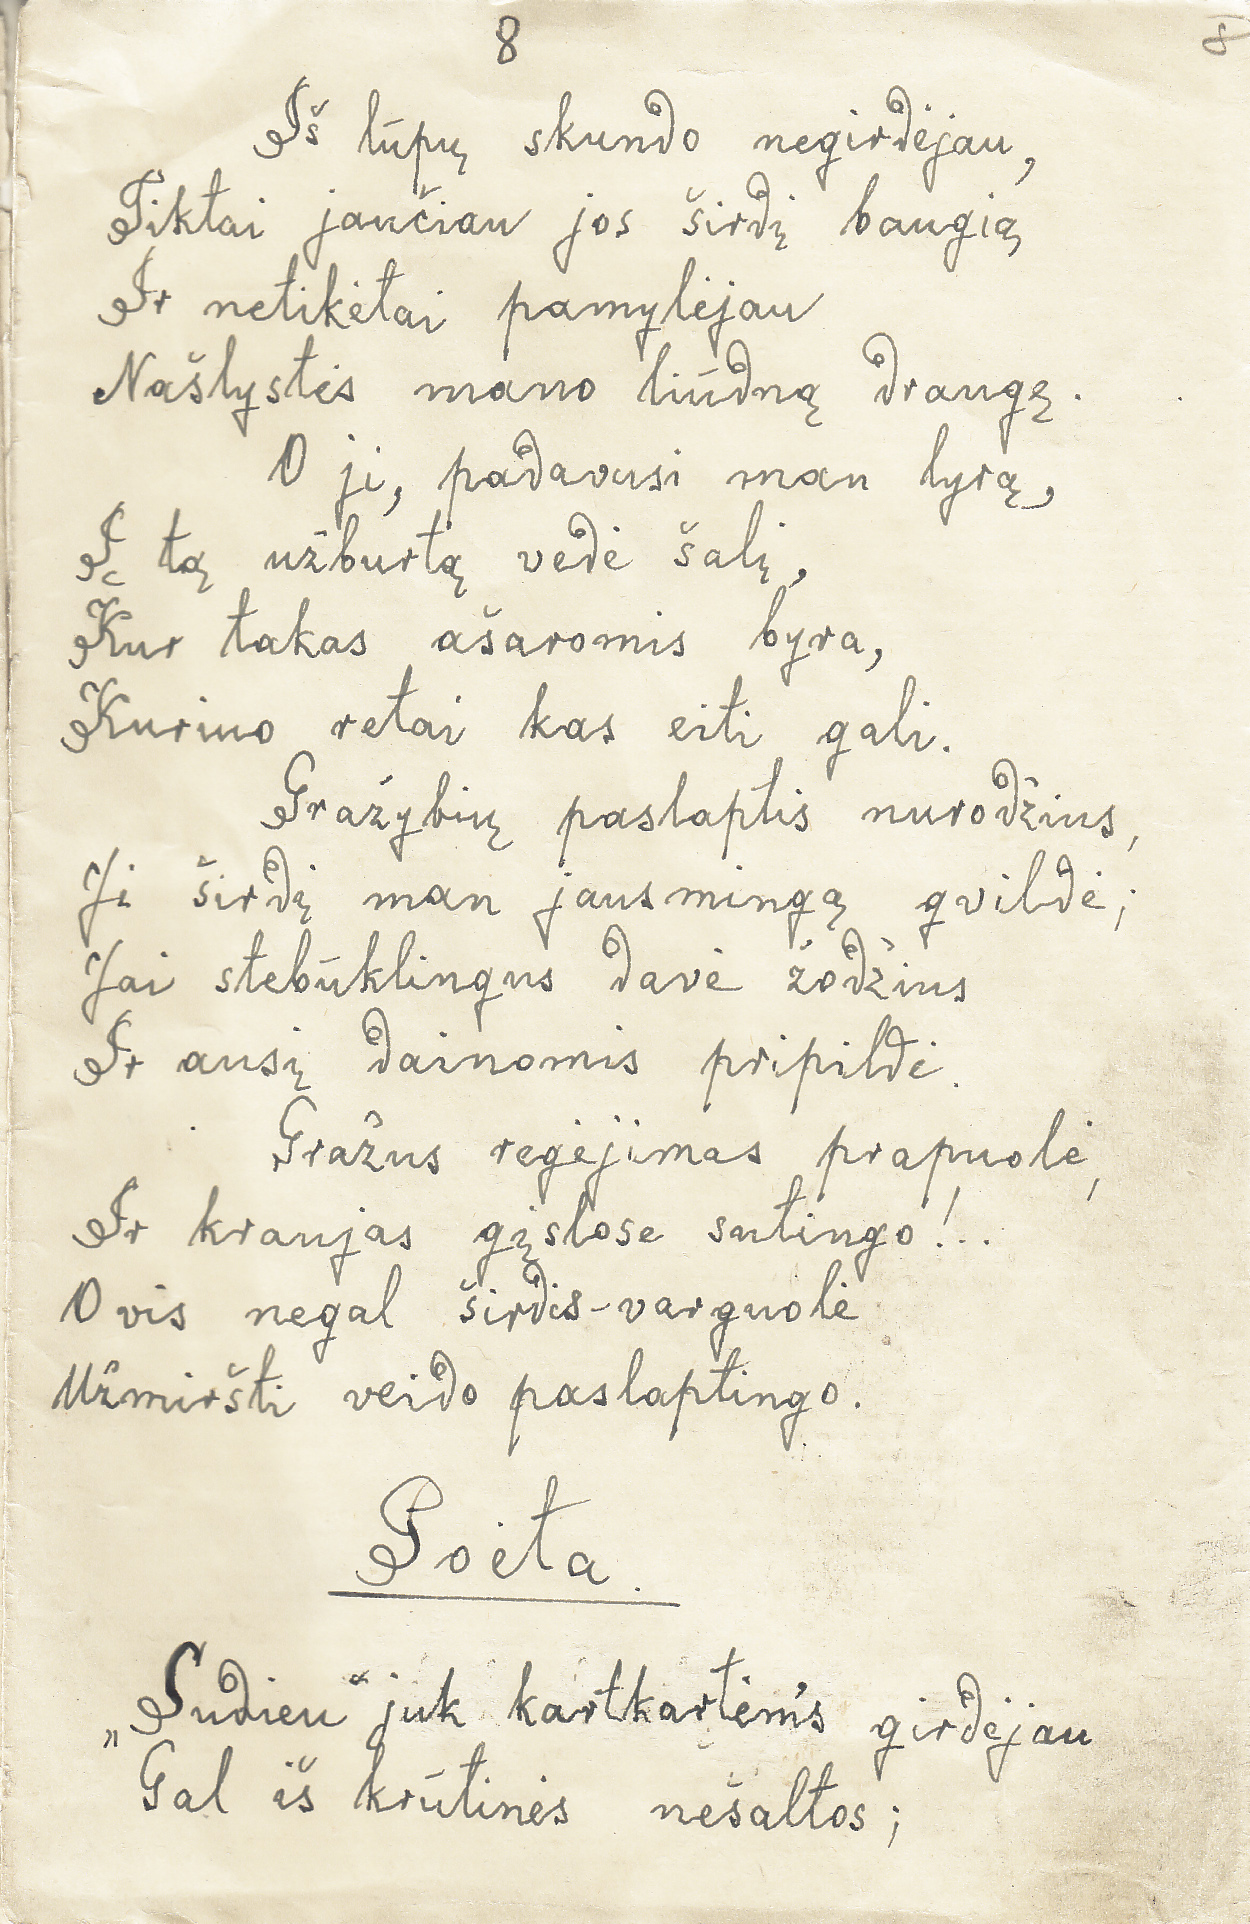 8 8
Iš lūpų skundo negirdėjau,
Tiktai jaučiau jos širdį baugią
Ir netikėtai pamylėjau
Našlystės mano liūdną draugę.
O ji, padavusi man lyrą,
Į tą užburtą vedė šalį,
Kur takas ašaromis byra,
Kuriuo retai kas eiti gali.
Gražybių paslaptis nurodžius,
Ji širdį man jausmingą gvildė;
Jai stebūklingus davė žodžius
Ir ausį dainomis pripildė.
Gražus regėjimas prapuolė,
Ir kraujas gįslose sutingo!..
O vis negal širdis-varguolė
Užmiršti veido paslaptingo.
Poeta.
„Sudieu“ juk kartkartėm's girdėjau
Gal iš krūtinės nešaltos;